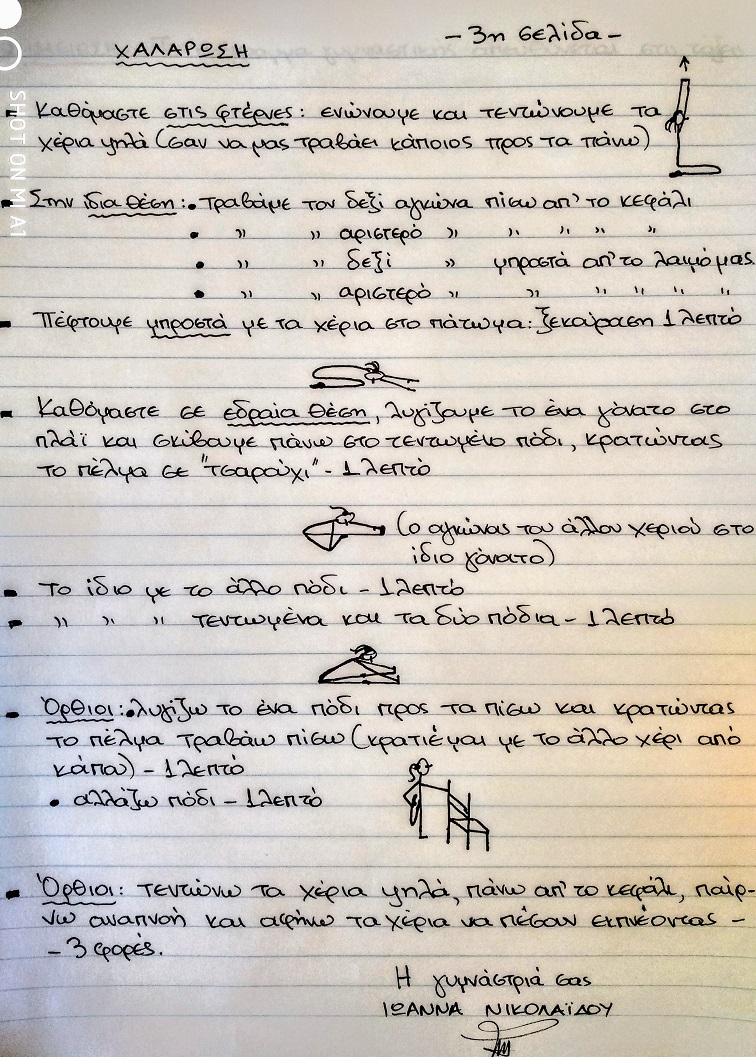 - 3η σελίδα -
ΧΑΛΑΡΩΣΗ
- Καθόμαστε στις φτέρνες: ενώνουμε και τεντώνουμε τα
χέρια ψηλά (σαν να μας τραβάει κάποιος προς τα πάνω)
- Στην ίδια θέση: • τραβάμε τον δεξί αγκώνα πίσω απ' το κεφάλι
• » » αριστερό » » » » »
• » » δεξί » μπροστά απ' το λαιμό μας.
• » » αριστερό » » » » » »
- Πέφτουμε μπροστά με τα χέρια στο πάτωμα: ξεκούραση 1 λεπτό
- Καθόμαστε σε εδραία θέση, λυγίζουμε το ένα γόνατο στο
πλάϊ και σκύβουμε πάνω στο τεντωμένο πόδι, κρατώντας
το πέλμα σε "τσαρούχι" - 1 λεπτό
(ο αγκώνας του άλλου χεριού στο
ίδιο γόνατο)
- Το ίδιο με το άλλο πόδι - 1 λεπτό
- » » » τεντωμένα και τα δύο πόδια - 1 λεπτό
- Όρθιοι: • λυγίζω το ένα πόδι προς τα πίσω και κρατώντας
το πέλμα τραβάω πίσω (κρατιέμαι με το άλλο χέρι από
κάπου) - 1 λεπτό
• αλλάζω πόδι - 1 λεπτό
- Όρθιοι: τεντώνω τα χέρια ψηλά, πάνω απ' το κεφάλι, παίρ-
νω αναπνοή και αφήνω τα χέρια να πέσουν εκπνέοντας -
- 3 φορές.
Η γυμνάστριά σας
ΙΩΑΝΝΑ ΝΙΚΟΛΑΪΔΟΥ
SHOT ON MI A1